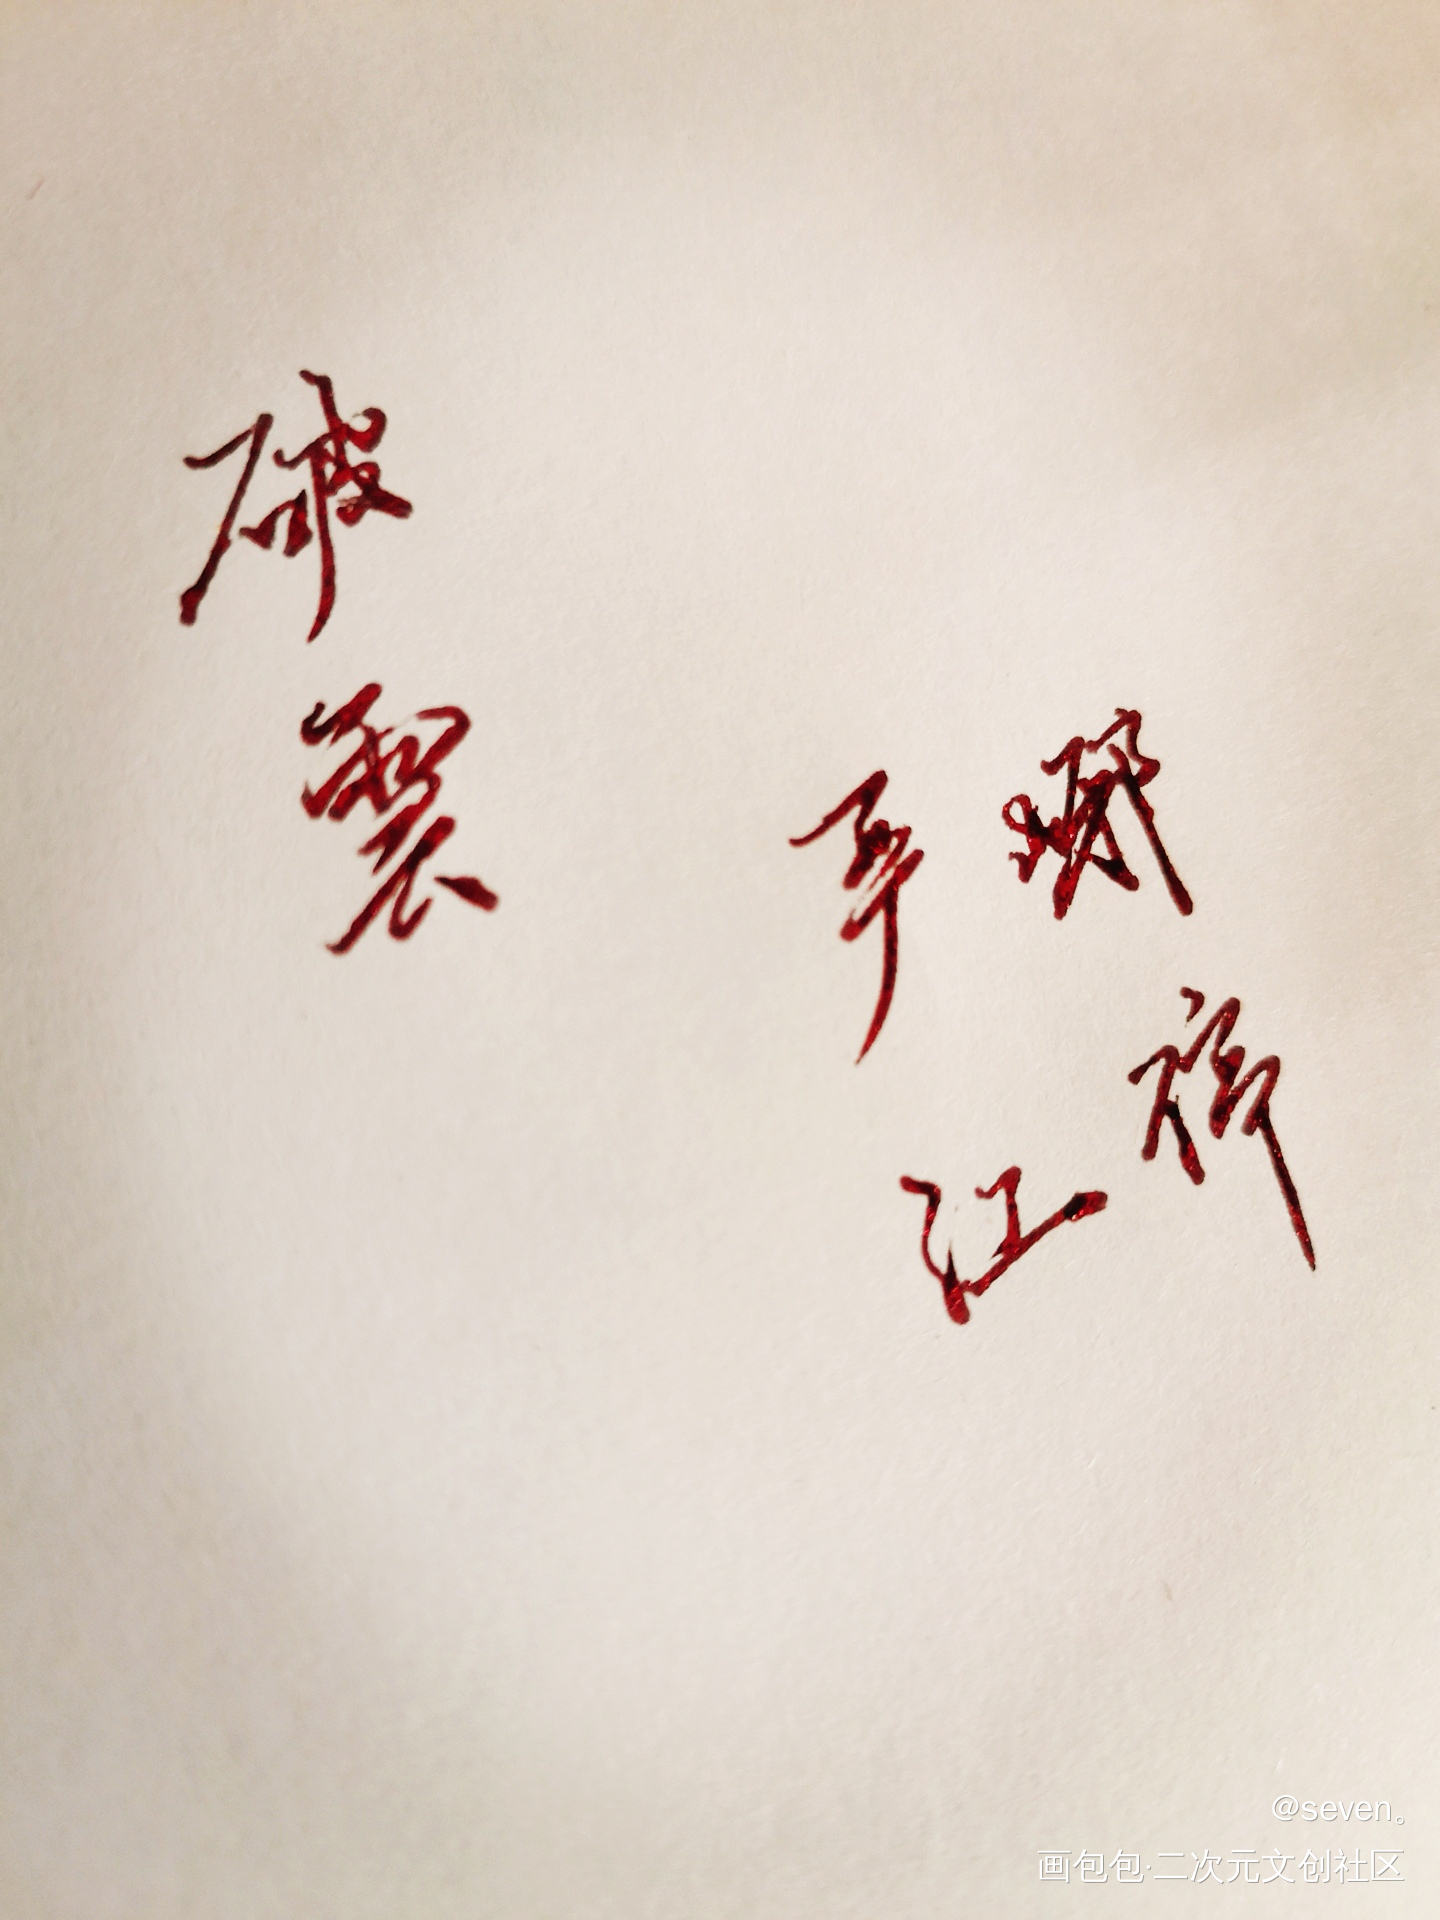 破
雲
严峫
江停
@seven。
画包包·二次元文创社区